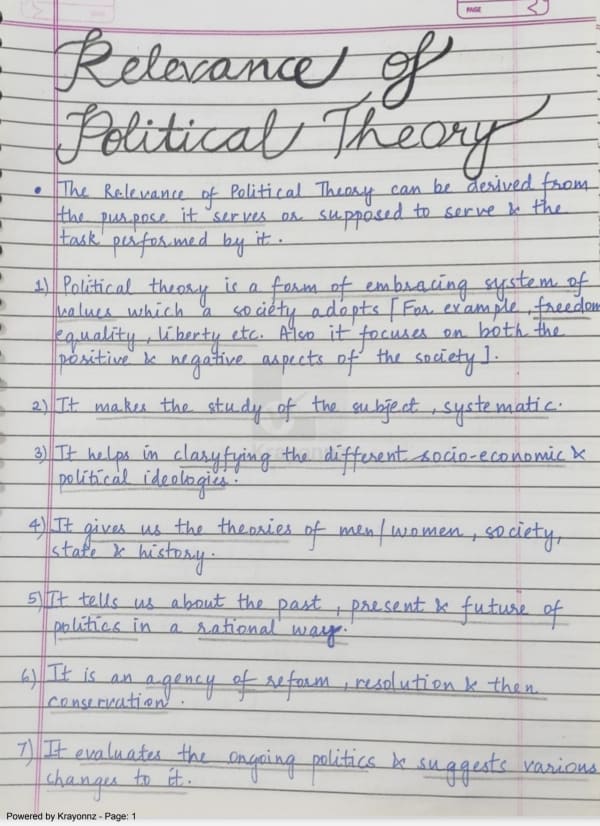 PAGE
Relevance of
Political Theory
• The Relevance of Political Theory can be derived from
the purpose it serves or supposed to serve & the
task performed by it.
1) Political theory is a form of embracing system of
values which a society adopts [For example, freedom
equality, liberty etc. Also it focuses on both the
positive & negative aspects of the society].
2) It makes the study of the subject, systematic.
3) It helps in claryfying the different socio-economic &
political ideologies.
4) It gives us the theories of men/women, society,
state & history.
5) It tells us about the past, present & future of
politics in a rational way.
6) It is an agency of reform, resolution & then
conservation.
7) It evaluates the ongoing politics & suggests various
changes to it.
Powered by Krayonnz - Page: 1